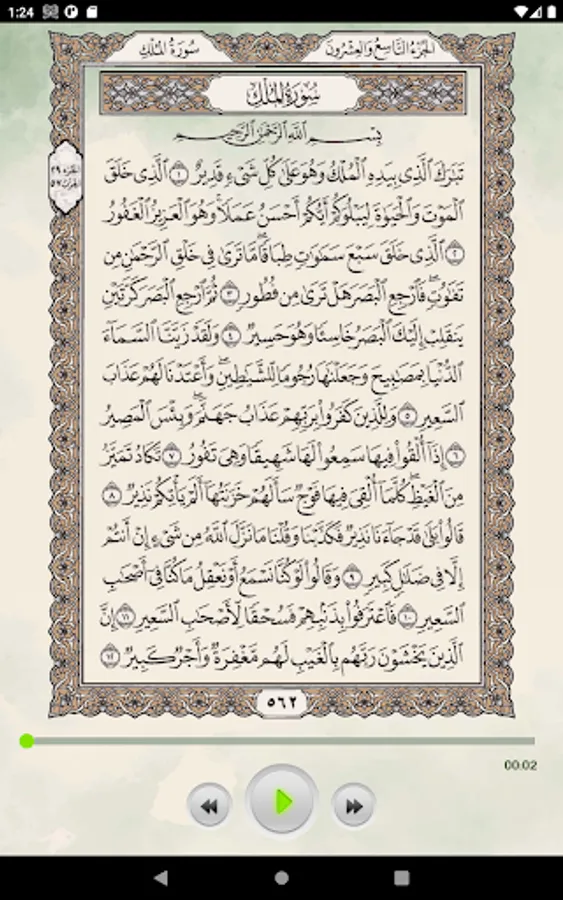 1:24
الجزء التاسع والعشرون
سورة الملك
سُورَةُ المُلْكِ
بِسْمِ ٱللَّهِ ٱلرَّحْمَٰنِ ٱلرَّحِيمِ
تَبَٰرَكَ ٱلَّذِى بِيَدِهِ ٱلْمُلْكُ وَهُوَ عَلَىٰ كُلِّ شَىْءٍ قَدِيرٌ ١ ٱلَّذِى خَلَقَ
ٱلْمَوْتَ وَٱلْحَيَوٰةَ لِيَبْلُوَكُمْ أَيُّكُمْ أَحْسَنُ عَمَلًا ۚ وَهُوَ ٱلْعَزِيزُ ٱلْغَفُورُ
٢ ٱلَّذِى خَلَقَ سَبْعَ سَمَٰوَٰتٍ طِبَاقًا ۖ مَّا تَرَىٰ فِى خَلْقِ ٱلرَّحْمَٰنِ مِن
تَفَٰوُتٍ ۖ فَٱرْجِعِ ٱلْبَصَرَ هَلْ تَرَىٰ مِن فُطُورٍ ٣ ثُمَّ ٱرْجِعِ ٱلْبَصَرَ كَرَّتَيْنِ
يَنقَلِبْ إِلَيْكَ ٱلْبَصَرُ خَاسِئًا وَهُوَ حَسِيرٌ ٤ وَلَقَدْ زَيَّنَّا ٱلسَّمَآءَ
ٱلدُّنْيَا بِمَصَٰبِيحَ وَجَعَلْنَٰهَا رُجُومًا لِّلشَّيَٰطِينِ ۖ وَأَعْتَدْنَا لَهُمْ عَذَابَ
ٱلسَّعِيرِ ٥ وَلِلَّذِينَ كَفَرُوا۟ بِرَبِّهِمْ عَذَابُ جَهَنَّمَ ۖ وَبِئْسَ ٱلْمَصِيرُ
٦ إِذَآ أُلْقُوا۟ فِيهَا سَمِعُوا۟ لَهَا شَهِيقًا وَهِىَ تَفُورُ ٧ تَكَادُ تَمَيَّزُ
مِنَ ٱلْغَيْظِ ۖ كُلَّمَآ أُلْقِىَ فِيهَا فَوْجٌ سَأَلَهُمْ خَزَنَتُهَآ أَلَمْ يَأْتِكُمْ نَذِيرٌ ٨
قَالُوا۟ بَلَىٰ قَدْ جَآءَنَا نَذِيرٌ فَكَذَّبْنَا وَقُلْنَا مَا نَزَّلَ ٱللَّهُ مِن شَىْءٍ إِنْ أَنتُمْ
إِلَّا فِى ضَلَٰلٍ كَبِيرٍ ٩ وَقَالُوا۟ لَوْ كُنَّا نَسْمَعُ أَوْ نَعْقِلُ مَا كُنَّا فِىٓ أَصْحَٰبِ
ٱلسَّعِيرِ ١٠ فَٱعْتَرَفُوا۟ بِذَنۢبِهِمْ فَسُحْقًا لِّأَصْحَٰبِ ٱلسَّعِيرِ ١١ إِنَّ
ٱلَّذِينَ يَخْشَوْنَ رَبَّهُم بِٱلْغَيْبِ لَهُم مَّغْفِرَةٌ وَأَجْرٌ كَبِيرٌ ١٢
٥٦٢
00:02